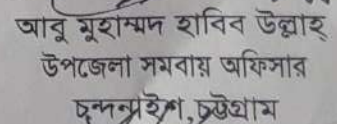 আবু মুহাম্মদ হাবিব উল্লাহ্
উপজেলা সমবায় অফিসার
চন্দনাইশ, চট্টগ্রাম